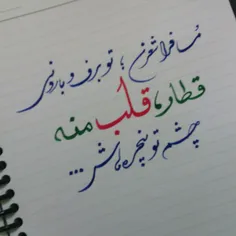 مُسافرا شعرن ؛ تو برف و بارونی
قطار ما قلب منه
چشم تو پنجره هاش ...